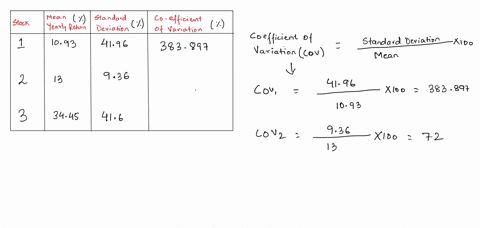 Stock Mean (%) Yearly Return Standard Deviation (%) Co-efficient Of Variation (%)
1 10.93 41.96 383.897
2 13 9.36
3 34.45 41.6
Coefficient Of Variation (COV) = Standard Deviation / Mean × 100
COV1 = 41.96 / 10.93 × 100 = 383.897
COV2 = 9.36 / 13 × 100 = 72